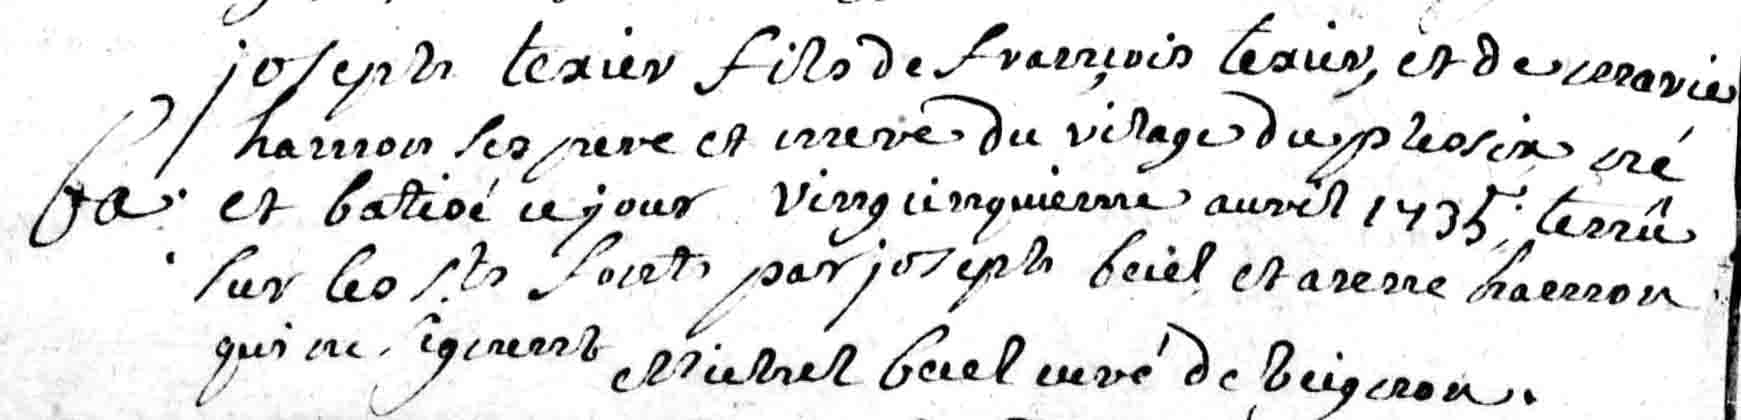 joseph texier fils de françois texier, et de marie
hamon ses pere et mere du vilage du plesix né
ba. et batisé ce jour vingcinquieme auvril 1735. tenû
sur les sts fonts par joseph beiel et anne hamon
qui ne signent Michel beiel curé de beignon.